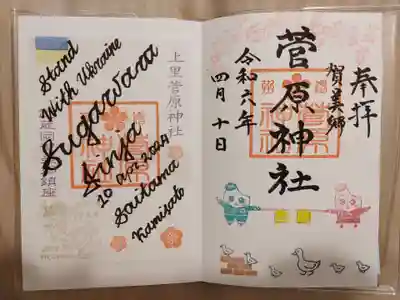 Stand
With Ukraine
Sugawara
Jinja
10 Apr. 2024
Saitama
Kamisato
上里菅原神社
鎮座
奉拝
賀美郷
菅原神社
令和六年
四月十日